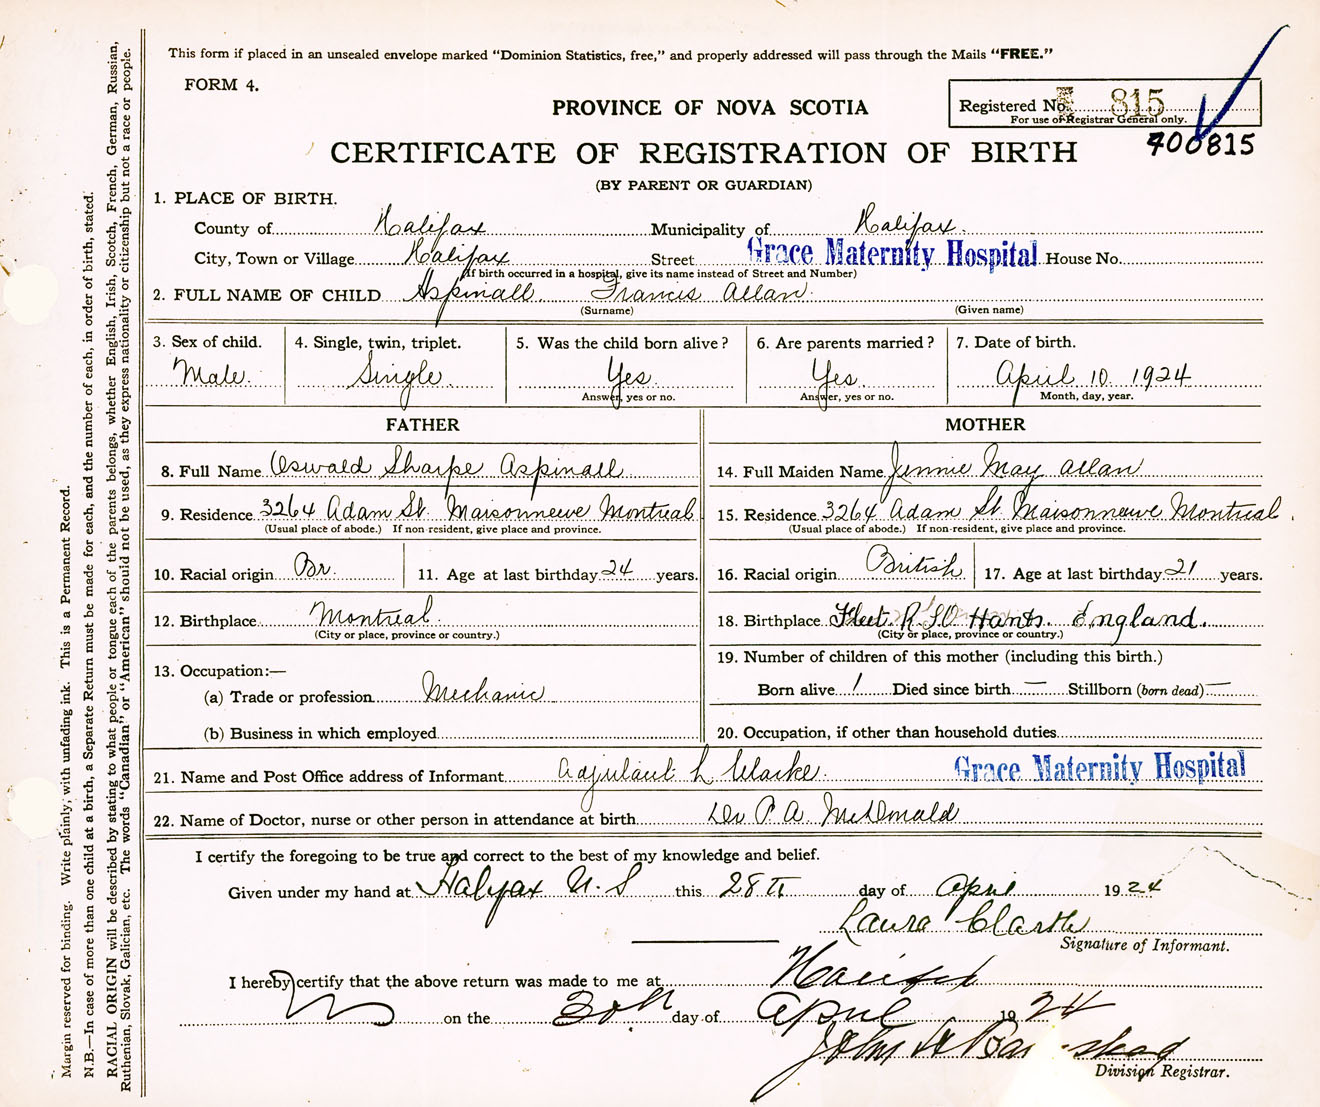 This form if placed in an unsealed envelope marked "Dominion Statistics, free," and properly addressed will pass through the Mails "FREE."
FORM 4.
PROVINCE OF NOVA SCOTIA
Registered No. 815
For use of Registrar General only.
700815
CERTIFICATE OF REGISTRATION OF BIRTH
(BY PARENT OR GUARDIAN)
1. PLACE OF BIRTH.
County of Halifax Municipality of Halifax.
City, Town or Village Halifax Street Grace Maternity Hospital House No.
(If birth occurred in a hospital, give its name instead of Street and Number)
2. FULL NAME OF CHILD Aspinall Francis Allan.
(Surname) (Given name)
3. Sex of child. 4. Single, twin, triplet. 5. Was the child born alive? 6. Are parents married? 7. Date of birth.
Male. Single. Yes. Yes. April 10. 1924
Answer, yes or no. Answer, yes or no. Month, day, year.
FATHER MOTHER
8. Full Name Oswald Sharpe Aspinall 14. Full Maiden Name Jennie May Allan
9. Residence 3264 Adam St. Maisonneuve Montreal 15. Residence 3264 Adam St. Maisonneuve Montreal.
(Usual place of abode.) If non-resident, give place and province. (Usual place of abode.) If non-resident, give place and province.
10. Racial origin Br. 11. Age at last birthday 24 years. 16. Racial origin British 17. Age at last birthday 21 years.
12. Birthplace Montreal. 18. Birthplace Fleet. R.S.O Hants. England.
(City or place, province or country.) (City or place, province or country.)
19. Number of children of this mother (including this birth.)
13. Occupation:—
(a) Trade or profession Mechanic Born alive 1 Died since birth — Stillborn (born dead) —
(b) Business in which employed 20. Occupation, if other than household duties
21. Name and Post Office address of Informant Adjutant L Clarke. Grace Maternity Hospital
22. Name of Doctor, nurse or other person in attendance at birth Dr P. A McDonald
I certify the foregoing to be true and correct to the best of my knowledge and belief.
Given under my hand at Halifax N. S this 28th day of April 1924
Laura Clarke
Signature of Informant.
I hereby certify that the above return was made to me at Halifax
on the 30th day of April 1924
John
Division Registrar.
Margin reserved for binding. Write plainly, with unfading ink. This is a Permanent Record.
N.B.—In case of more than one child at a birth, a Separate Return must be made for each, and the number of each, in order of birth, stated.
RACIAL ORIGIN will be described by stating to what people or tongue each of the parents belongs, whether English, Irish, Scotch, French, German, Russian,
Ruthenian, Slovak, Galician, etc. The words "Canadian" or "American" should not be used, as they express nationality or citizenship but not a race or people.